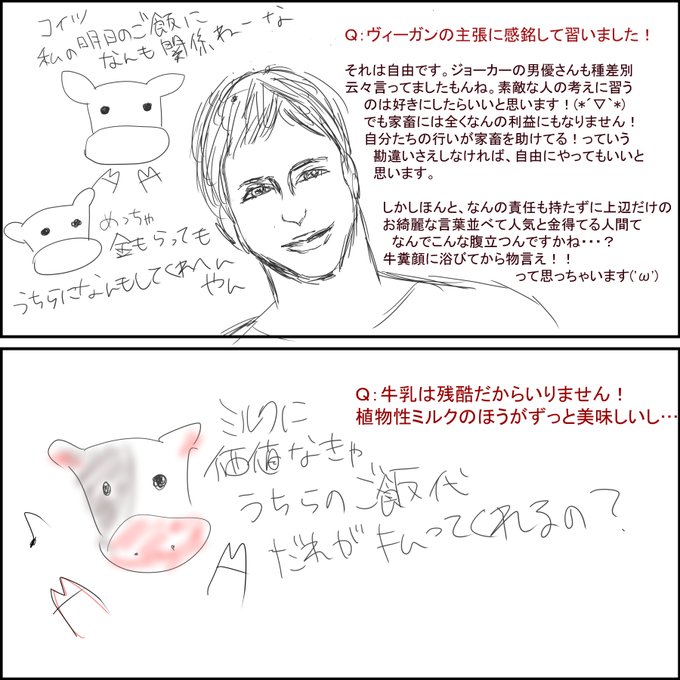 コイツ
私の明日のご飯に
なんも関係ねーな
めっちゃ
金もらっても
うちらになんもしてくれへん
やん
Q：ヴィーガンの主張に感銘して習いました！
それは自由です。ジョーカーの男優さんも種差別
云々言ってましたもんね。素敵な人の考えに習う
のは好きにしたらいいと思います！(*´∇`*)
でも家畜には全くなんの利益にもなりません！
自分たちの行いが家畜を助けてる！っていう
勘違いさえしなければ、自由にやってもいいと
思います。
しかしほんと、なんの責任も持たずに上辺だけの
お綺麗な言葉並べて人気と金得てる人間て
なんでこんな腹立つんですかね・・・？
牛糞顔に浴びてから物言え！！
って思っちゃいます('ω')
Q：牛乳は残酷だからいりません！
植物性ミルクのほうがずっと美味しいし…
ミルクに
価値なきゃ
うちらのご飯代
だれが払ってくれるの？